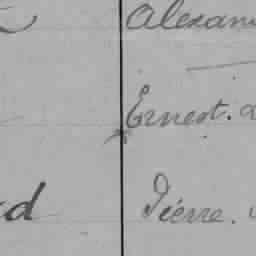 Alexan
Ernest.
d Piérre.